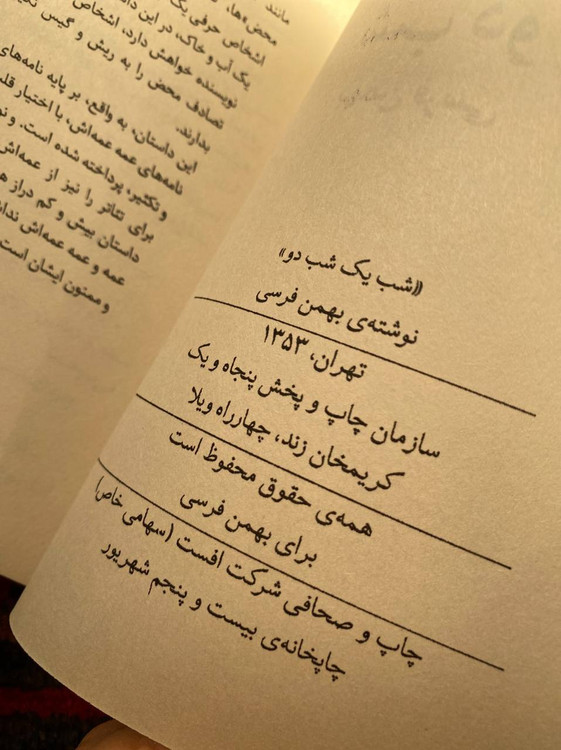 مانند
محض»ها،
اشخاص حرفی یک
یک آب و خاک، در این دا
نویسنده خواهش دارد، اشخاص
تصادف محض را به ریش و گیس
بدارند.
این داستان، به واقع، بر پایه نامه‌های
نامه‌های عمه عمه‌اش، با اختیار قلـ
و تکثیر، پرداخته شده است. و نو
برای تئاتر را نیز از عمه‌اش
داستان بیش و کم دراز هـ
عمه و عمه عمه‌اش ندا
و ممنون ایشان است
«شب یک شب دو»
نوشته‌ی بهمن فرسی
تهران، ۱۳۵۳
سازمان چاپ و پخش پنجاه و یک
کریمخان زند، چهارراه ویلا
همه‌ی حقوق محفوظ است
برای بهمن فرسی
چاپ و صحافی شرکت افست (سهامی خاص)
چاپخانه‌ی بیست و پنجم شهریور